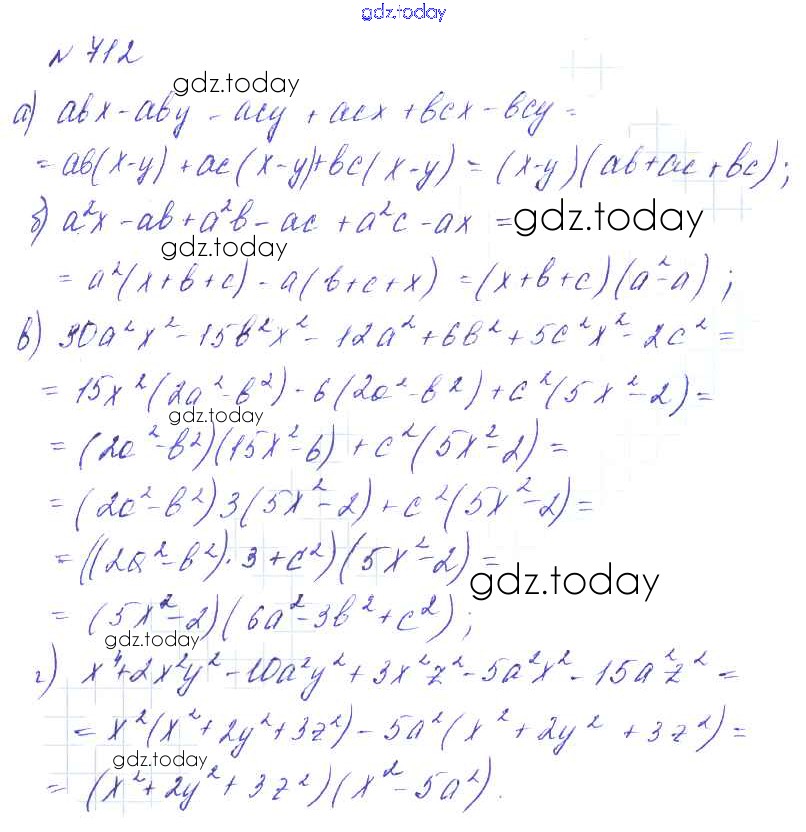 gdz.today
№ 712
gdz.today
а) abx - aby - acy + acx + bcx - bcy =
= ab(x-y) + ac(x-y) + bc(x-y) = (x-y)(ab+ac+bc);
б) a²x - ab + a²b - ac + a²c - ax = gdz.today
gdz.today
= a²(x+b+c) - a(b+c+x) = (x+b+c)(a²-a);
в) 30a²x² - 15b²x² - 12a² + 6b² + 5c²x² - 2c² =
= 15x²(2a²-b²) - 6(2a²-b²) + c²(5x²-2) =
gdz.today
= (2a²-b²)(15x²-6) + c²(5x²-2) =
= (2a²-b²)3(5x²-2) + c²(5x²-2) =
= ((2a²-b²)·3+c²)(5x²-2) =
gdz.today
= (5x²-2)(6a²-3b²+c²);
gdz.today
г) x⁴+2x²y² - 10a²y² + 3x²z² - 5a²x² - 15a²z² =
= x²(x²+2y²+3z²) - 5a²(x²+2y²+3z²) =
gdz.today
= (x²+2y²+3z²)(x²-5a²).